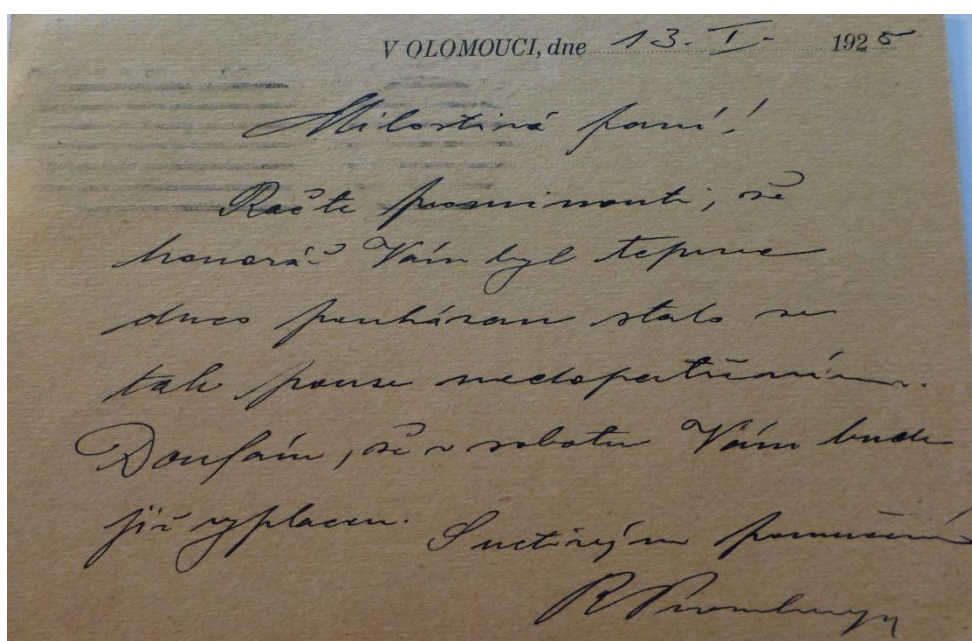 V OLOMOUCI, dne 13. I. 1925
Milostivá paní!
Račte prominouti, že
honorář Vám byl teprve
dnes poukázan stalo se
tak pouze nedopatřením.
Doufám, že v sobotu Vám bude
již vyplacen.
S uctivým poručení
R